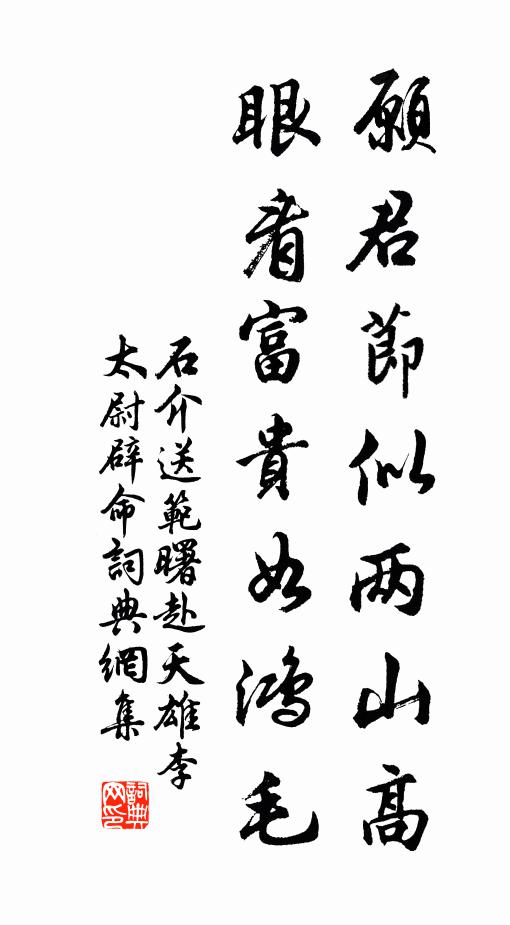 願君節似两山高
眼看富貴如鴻毛
石介送範曙赴天雄李
太尉辟命詞典網集
詞典
网印